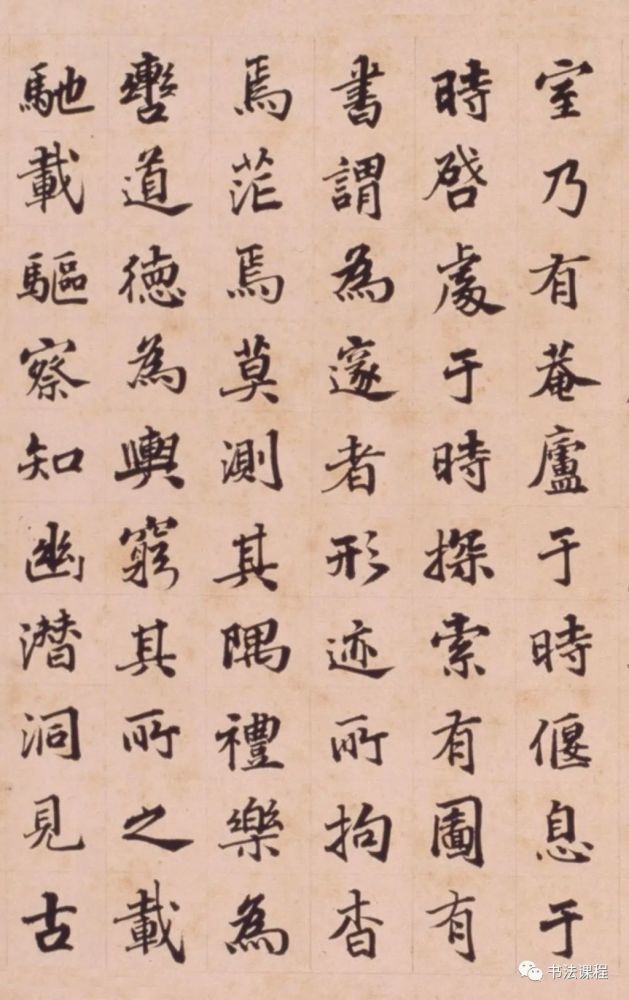 室乃有菴廬于時偃息于
時啓處于時探索有圖有
書謂為邃者形迹所拘杳
焉茫焉莫測其隅禮樂為
轡道德為輿窮其所之載
馳載驅察知幽潛洞見古
书法课程